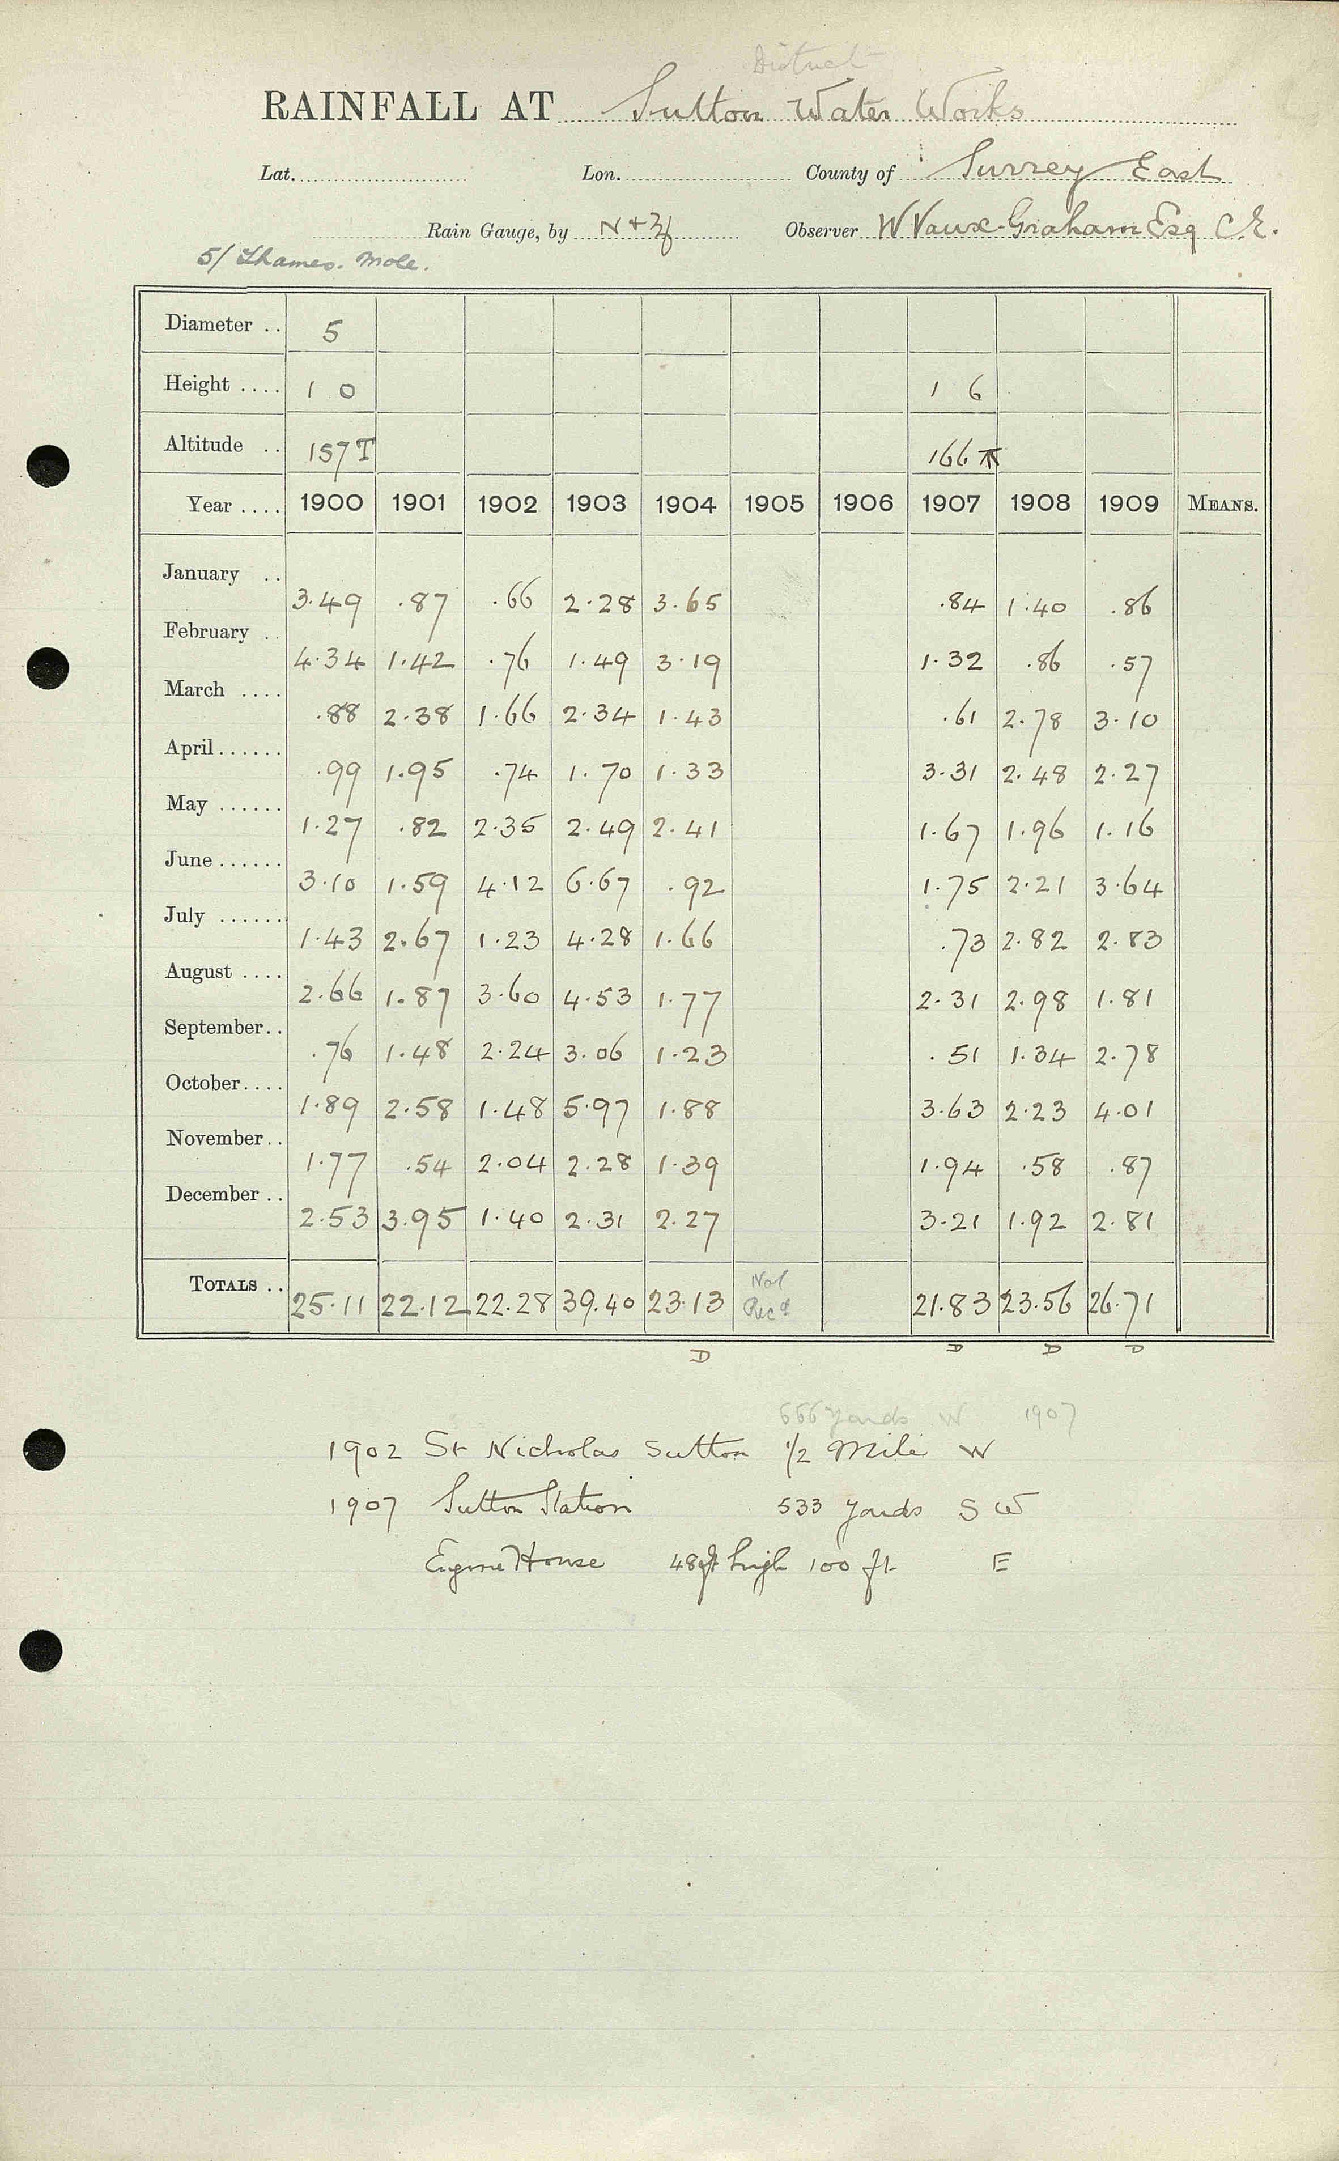 District
RAINFALL AT Sutton Water Works
Lat. Lon. County of Surrey East
Rain Gauge, by N + Z Observer W Vaux-Graham Esq C.E.
5/ Thames. Mole.
Diameter .. 5
Height .... 1 0 1 6
Altitude .. 157 T 166 T
Year .... 1900 1901 1902 1903 1904 1905 1906 1907 1908 1909 MEANS.
January .. 3.49 .87 .66 2.28 3.65 .84 1.40 .86
February .. 4.34 1.42 .76 1.49 3.19 1.32 .86 .57
March .... .88 2.38 1.66 2.34 1.43 .61 2.78 3.10
April...... .99 1.95 .74 1.70 1.33 3.31 2.48 2.27
May ...... 1.27 .82 2.35 2.49 2.41 1.67 1.96 1.16
June ...... 3.10 1.59 4.12 6.67 .92 1.75 2.21 3.64
July ...... 1.43 2.67 1.23 4.28 1.66 .73 2.82 2.83
August .... 2.66 1.87 3.60 4.53 1.77 2.31 2.98 1.81
September.. .76 1.48 2.24 3.06 1.23 .51 1.34 2.78
October.... 1.89 2.58 1.48 5.97 1.88 3.63 2.23 4.01
November.. 1.77 .54 2.04 2.28 1.39 1.94 .58 .87
December .. 2.53 3.95 1.40 2.31 2.27 3.21 1.92 2.81
TOTALS .. 25.11 22.12 22.28 39.40 23.13 Not Recd 21.83 23.56 26.71
D D D D
666 yards W 1907
1902 St Nicholas Sutton 1/2 Mile W
1907 Sutton Station 533 yards S W
Engine House 48 ft high 100 ft. E